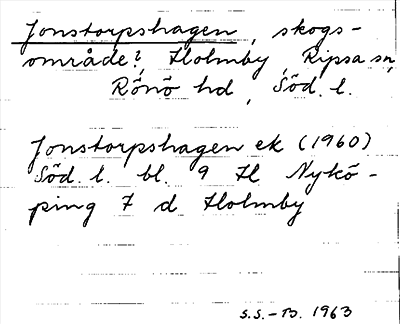 Jonstorpshagen, skogs-
område?, Holmby, Ripsa sn,
Rönö hd, Söd. l.
Jonstorpshagen ek (1960)
Söd. l. bl. 9 H Nykö-
ping 7 d Holmby
S.S.-B. 1963